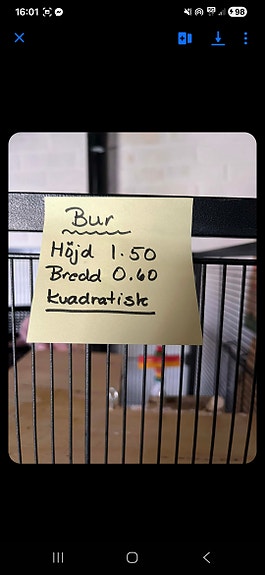 16:01
98
Bur
Höjd 1.50
Bredd 0.60
Kvadratisk